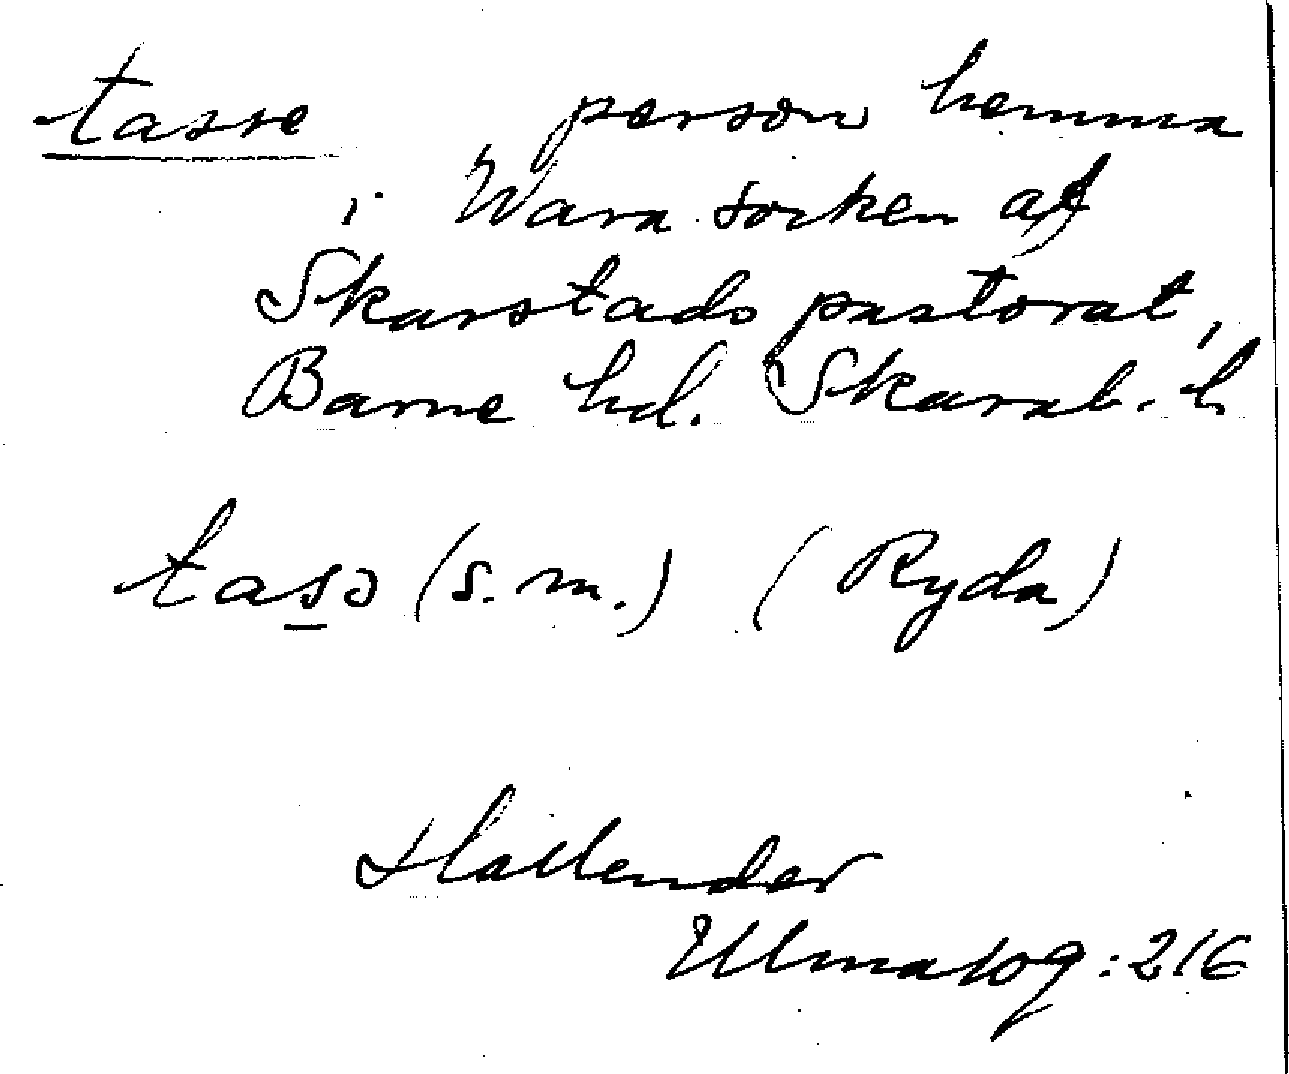 tasse person hemma
i Wara socken af
Skarstads pastorat,
Barne hd. Skarab. l.
tasə (s. m.) (Ryda)
Hallender
Ulma 109:216